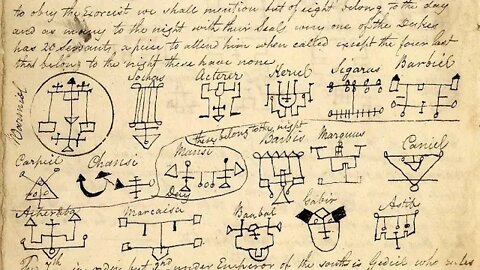 to obey the Exorcist we shall mention but of eight belong to the day
and as many to the night with their Seal were one of the Dukes
has 20 servants, a piece to attend him when called except the fower last
that belong to the night these have none
Carniel
Sochas
Acterer
Keriel
Sigaras
Barbiel
these belong to the night
Carpiel
Chansi
Mansi
Barbis
Marguus
Caniel
Day
Acherba
Marcaisa
Baabal
Gabir
Astib
The 7th in order but 3rd under Emperor of the south is Gediel who rules